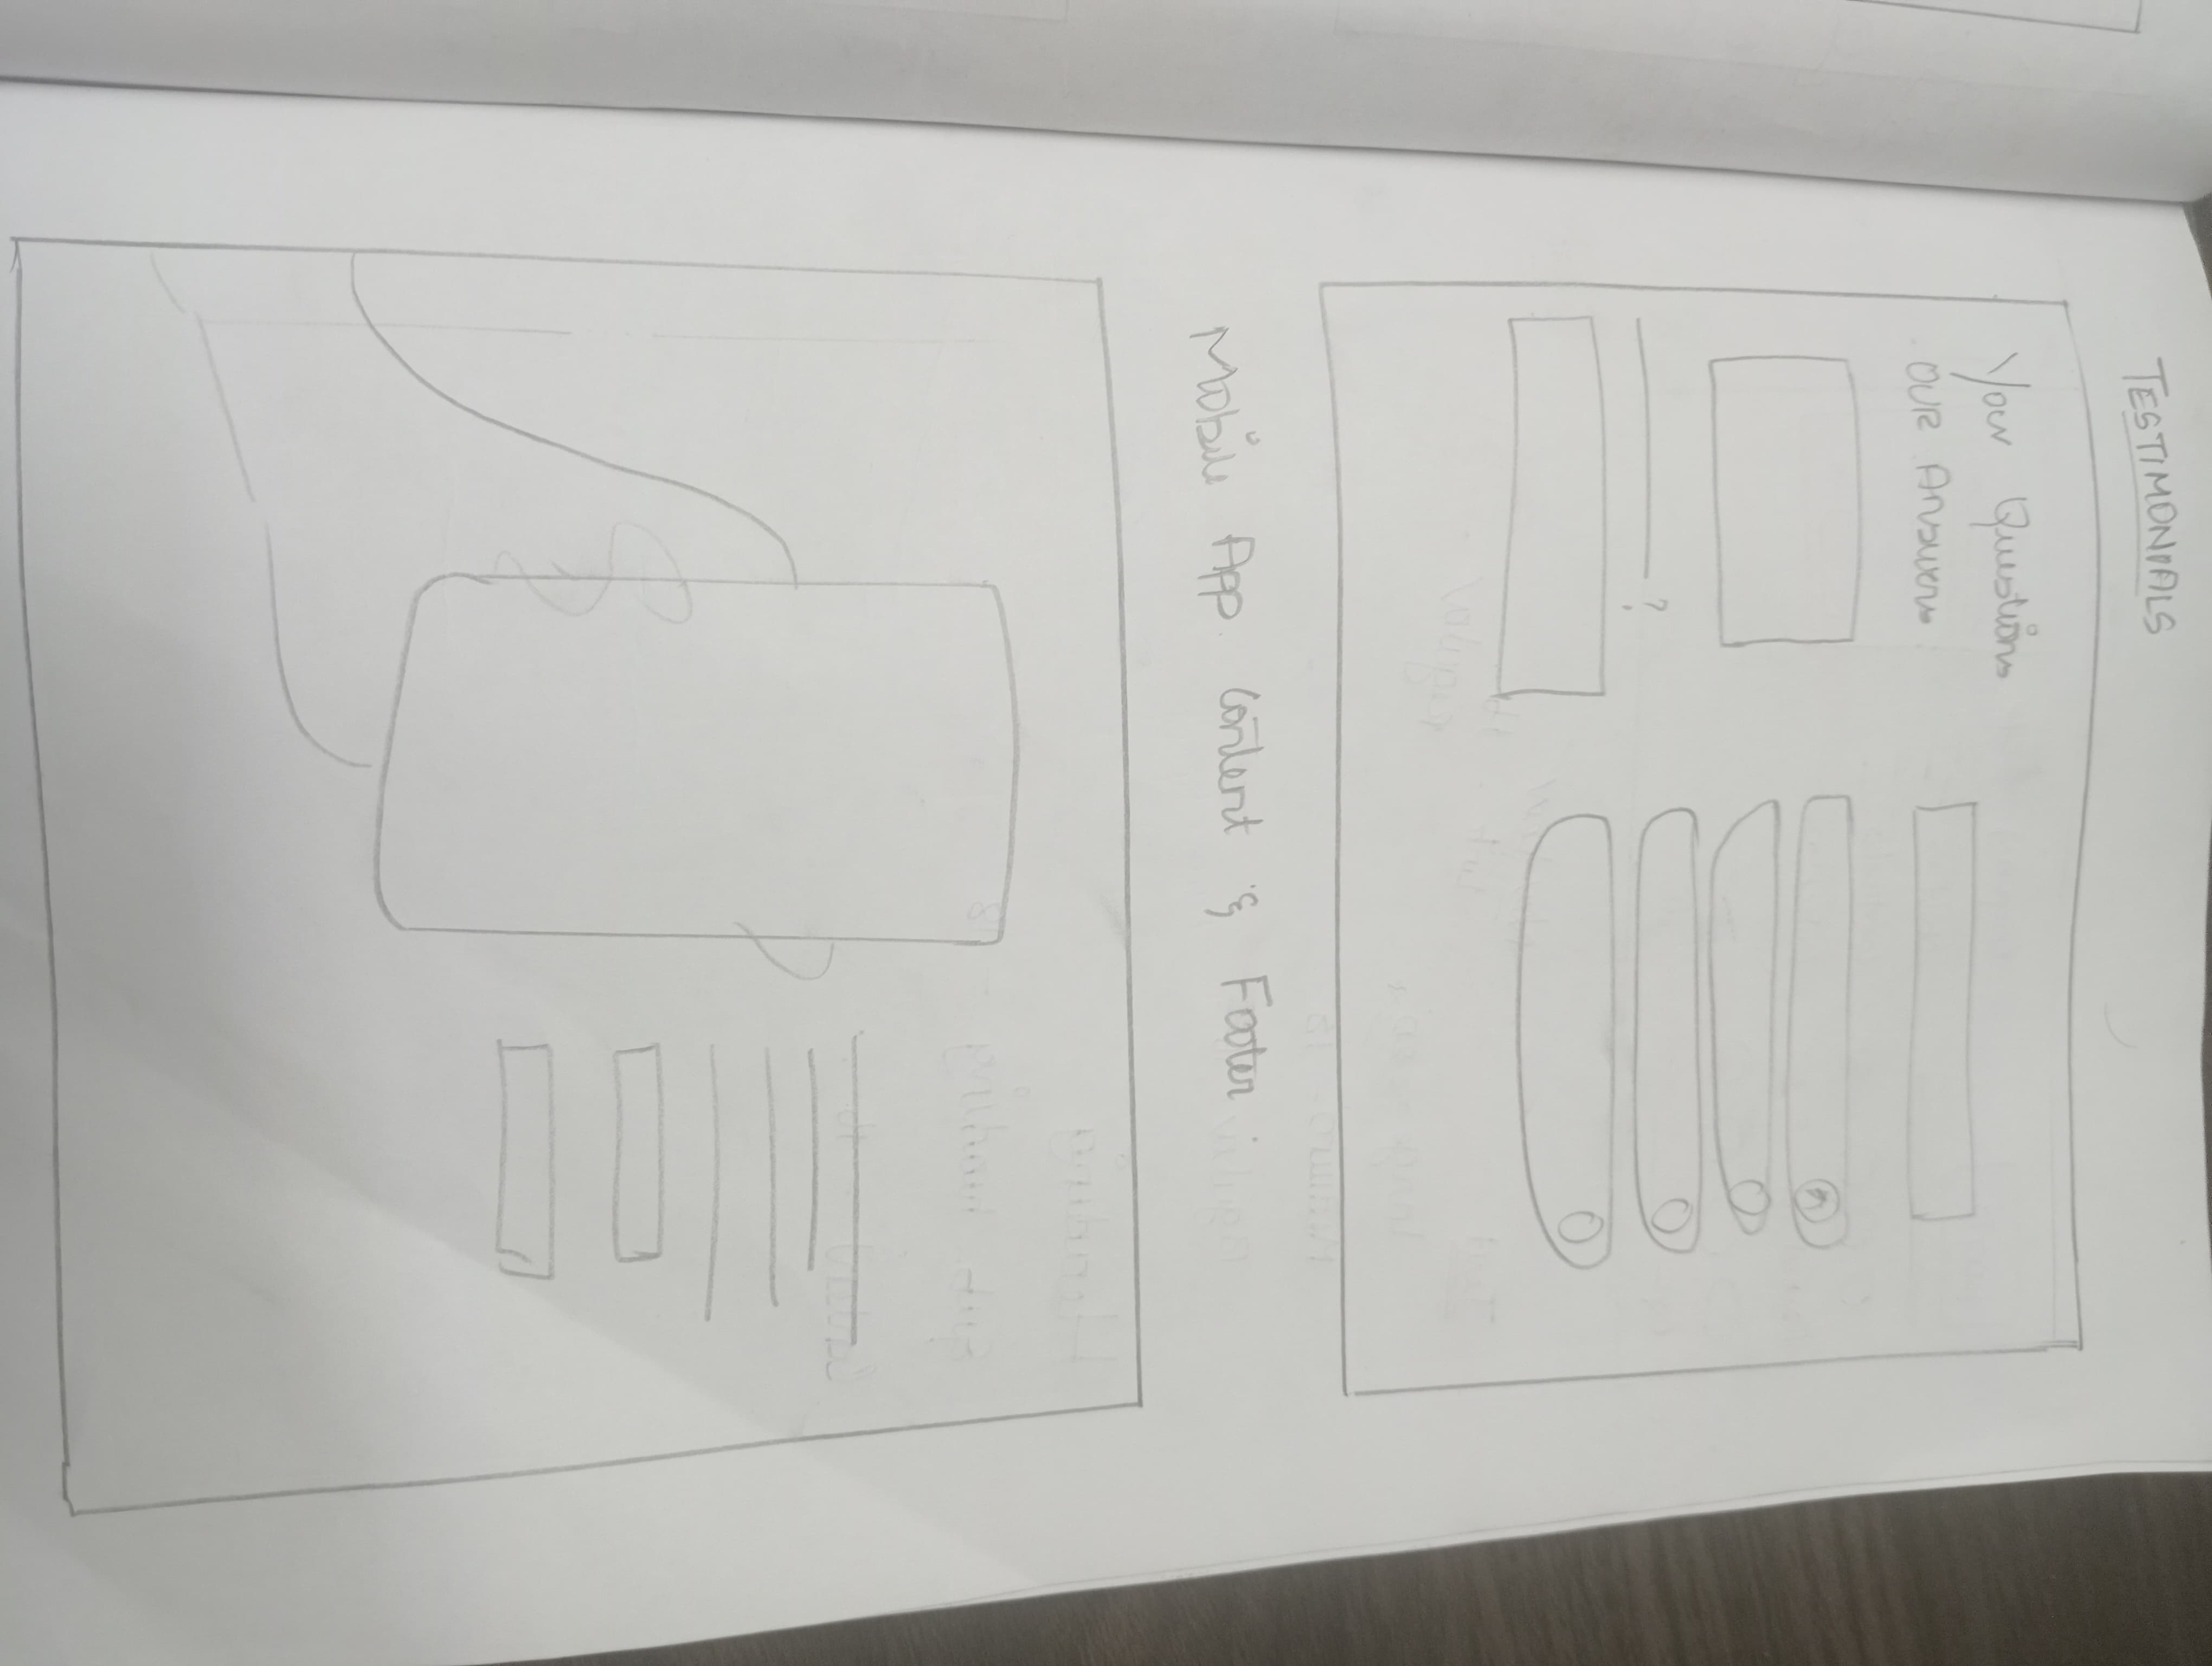 TESTIMONIALS
Your Questions
OUR Answers.
?
Mobile App Content & Footer